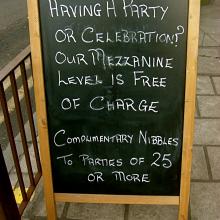 HAVING A PARTY
OR CELEBRATION?
OUR MEZZANINE
LEVEL IS FREE
OF CHARGE
COMPLIMENTARY NIBBLES
TO PARTIES OF 25
OR MORE